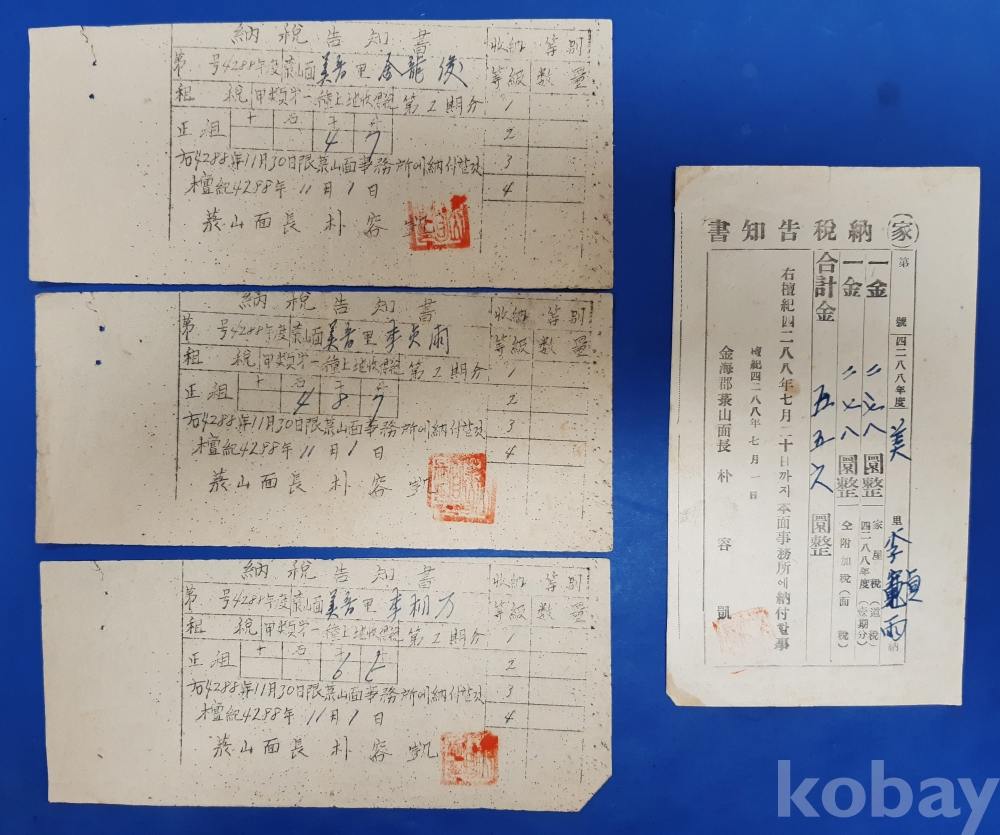 納稅告知書
收納 等別
第 号4288年度菉山面 美音 里 金龍俊
等級 数量
租 税 甲類第一種土地收得税 第2期分 1
十 石 斗 升
正租 4 7
2
右4288年11月30日限菉山面事務所에納付할것
3
檀紀4288年 11月1日
4
菉山面長 朴容凱
納稅告知書
收納 等別
第 号4288年度菉山面 美音 里 李貞雨
等級 数量
租 税 甲類第一種土地收得税 第2期分 1
十 石 斗 升
正租 4 8 7
2
右4288年11月30日限菉山面事務所에納付할것
3
檀紀4288年 11月1日
4
菉山面長 朴容凱
納稅告知書
收納 等別
第 号4288年度菉山面 美音 里 李 万
等級 数量
租 税 甲類第一種土地收得税 第2期分 1
十 石 斗 升
正租 6
2
右4288年11月30日限菉山面事務所에納付할것
3
檀紀4288年 11月1日
4
菉山面長 朴容凱
(家)納稅告知書
第 號 四二八八年度 美 里 李 雨 納
一金 二七八 圜整 家屋稅(道稅)
四二八八年度(壹期分)
一金 二七八 圜整 仝附加稅(面稅)
合計金 五五六 圜整
右檀紀四二八八年七月二十日까지本面事務所에納付할事
檀紀四二八八年七月一日
金海郡菉山面長 朴容凱
kobay